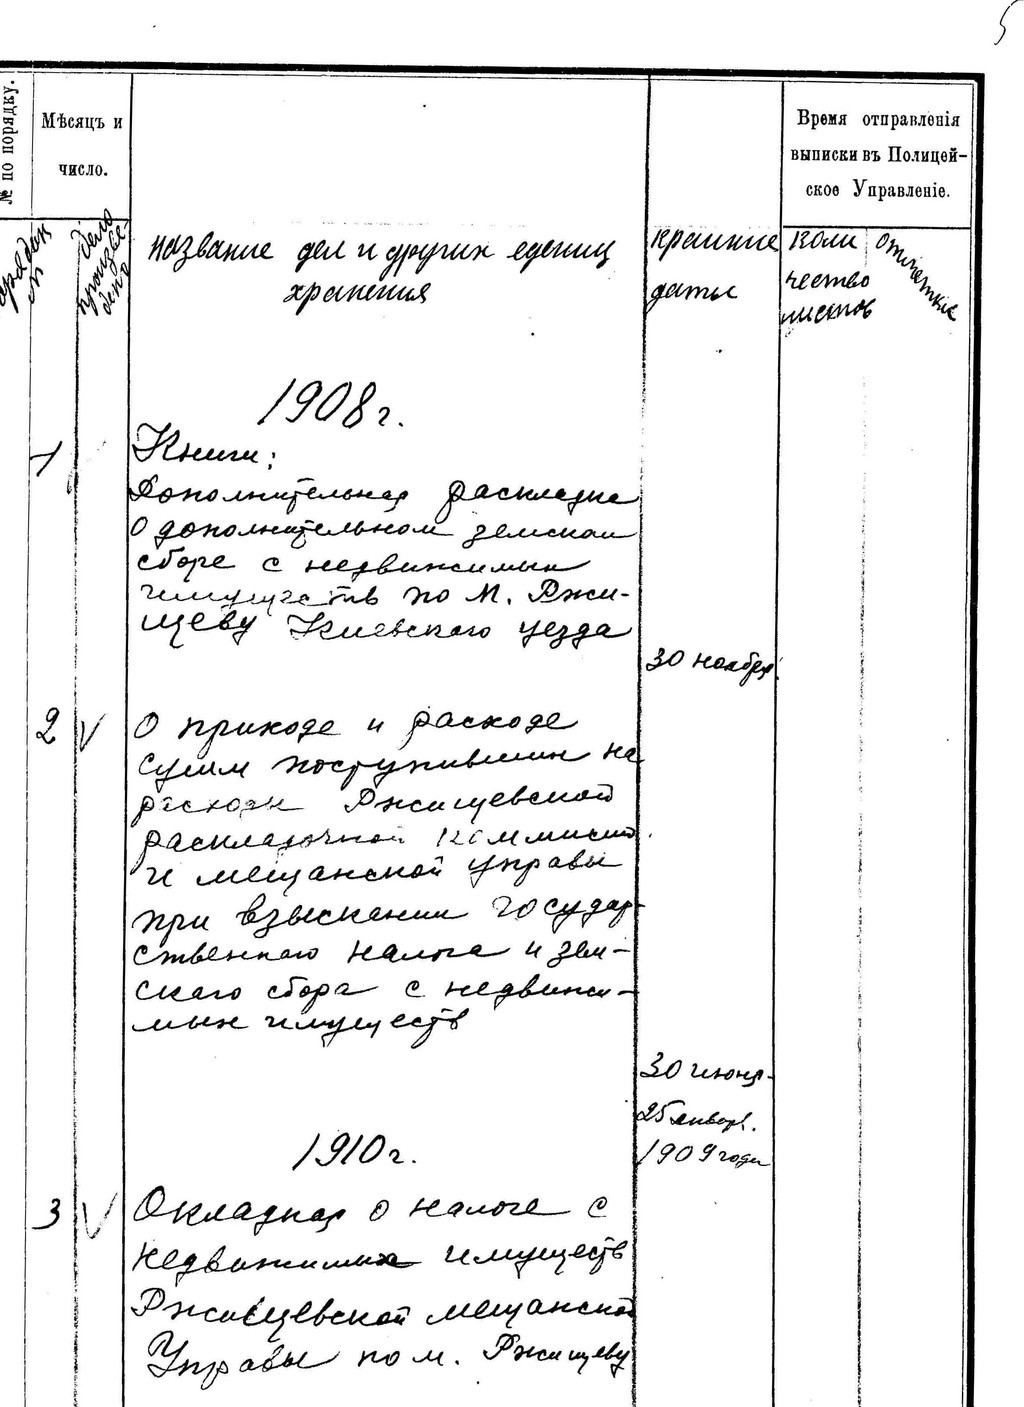 5
№ по порядку.
Мѣсяцъ и
число.
Время отправленія
выписки въ Полицей-
ское Управленіе.
дело
произве
ден
название дел и других едениц
хранения
крайние
даты
коли
чество
листов
отметки
1908 г.
1
Книги:
Дополнительная раскладка
о дополнительном земском
сборе с недвижимых
имуществ по М. Ржи-
щеву Киевского уезда
30 ноября.
2 V
О приходе и расходе
сумм поступивших на
расходы Ржищевской
раскладочной коммисии
и мещанской управы
при взыскании государ-
ственного налога и зем-
скаго сбора с недвижи-
мых имуществ
30 июня-
25 январ.
1909 года
1910 г.
3 V
Окладная о налоге с
недвижимых имуществ
Ржищевской мещанской
Управы по м. Ржищеву